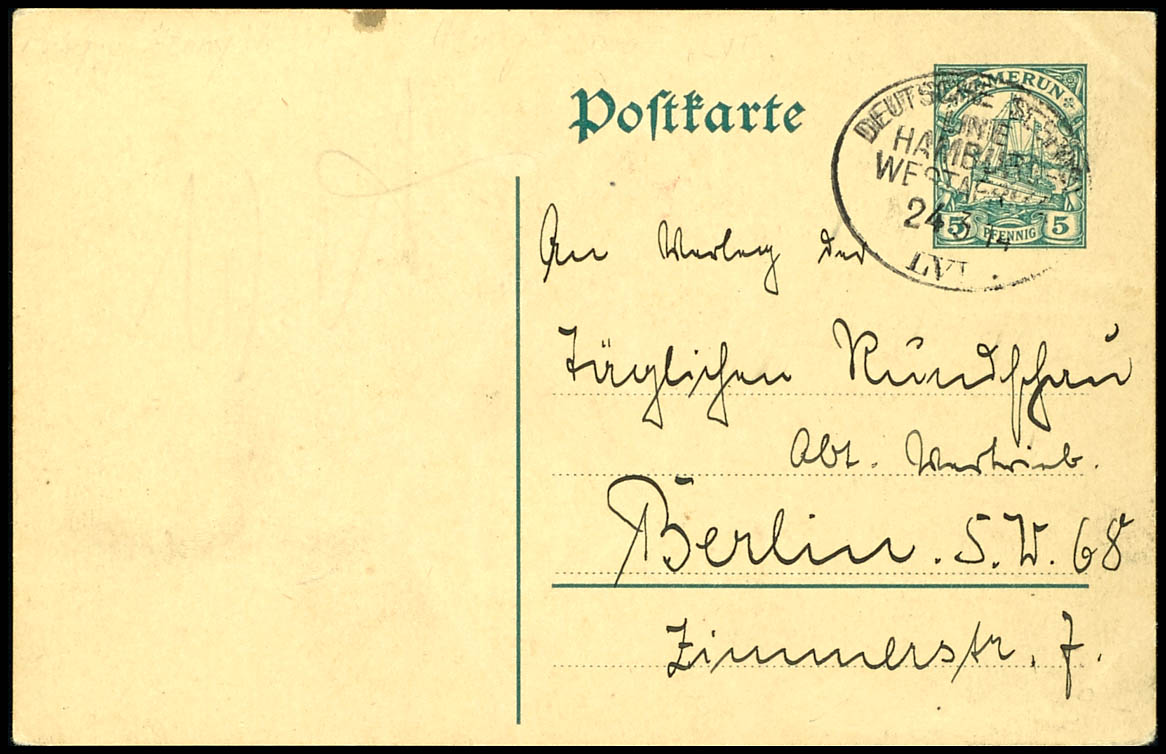 Postkarte
KAMERUN
5 PFENNIG 5
DEUTSCHE SEEPOST
LINIE
HAMBURG-
WESTAFRIKA
24 3 14
LVI.
An Verlag der
Täglichen Rundschau
Abt. Vertrieb.
Berlin. S.W. 68
Zimmerstr. 7.